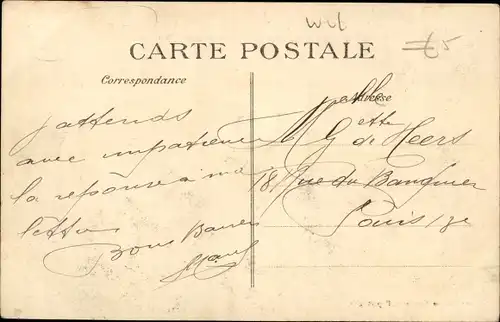 CARTE POSTALE
Correspondance
Adresse
J'attends
avec impatience
la reponse a ma
lettre
Bons Baisers
Melle
Gette de Heers
18 Rue du Banquier
Paris 13e